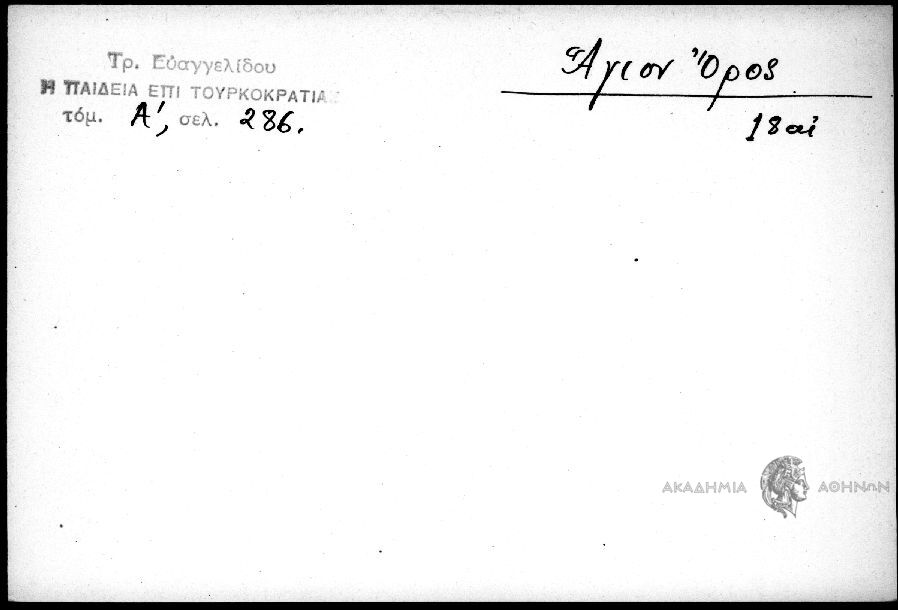 Τρ. Εὐαγγελίδου
Η ΠΑΙΔΕΙΑ ΕΠΙ ΤΟΥΡΚΟΚΡΑΤΙΑΣ
τόμ. Α', σελ. 286.
Ἅγιον Ὄρος
18 αἰ
ΑΚΑΔΗΜΙΑ ΑΘΗΝΩΝ